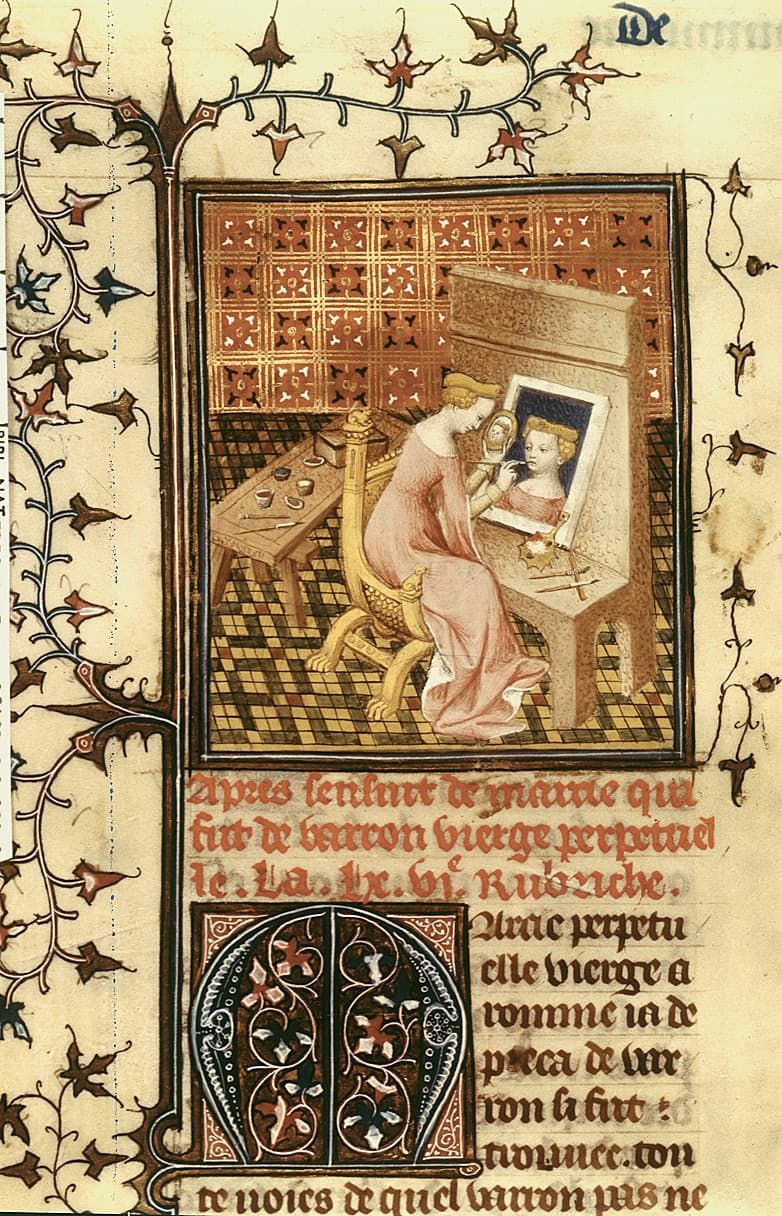 De
Apres sensuit de marcie qui
fut de varron vierge perpetuel
le. La. lx. vi.e Rubriche.
Marcie perpetu
elle vierge a
romme ia de
pieca de var
ron si fut
trouuee. tou
te uoies de quel varron pas ne